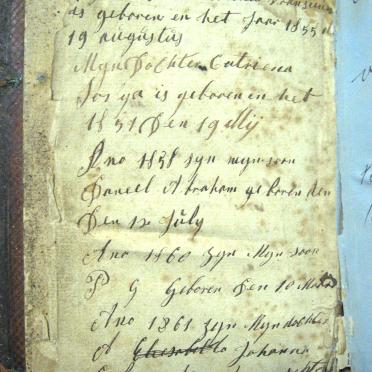 is geboren en het Jaar 1855 d
19 augustus
Myn Dochter Catriena
Josya is geboren en het
1857 Den 19 Mij
Ano 1858 syn myn soon
Daneel Abraham geboren den
Den 12 July
Ano 1860 syn Myn soon
P G Geboren Den 10 Maart
Ano 1861 syn Myn dochter
A Elisabetta Johanna